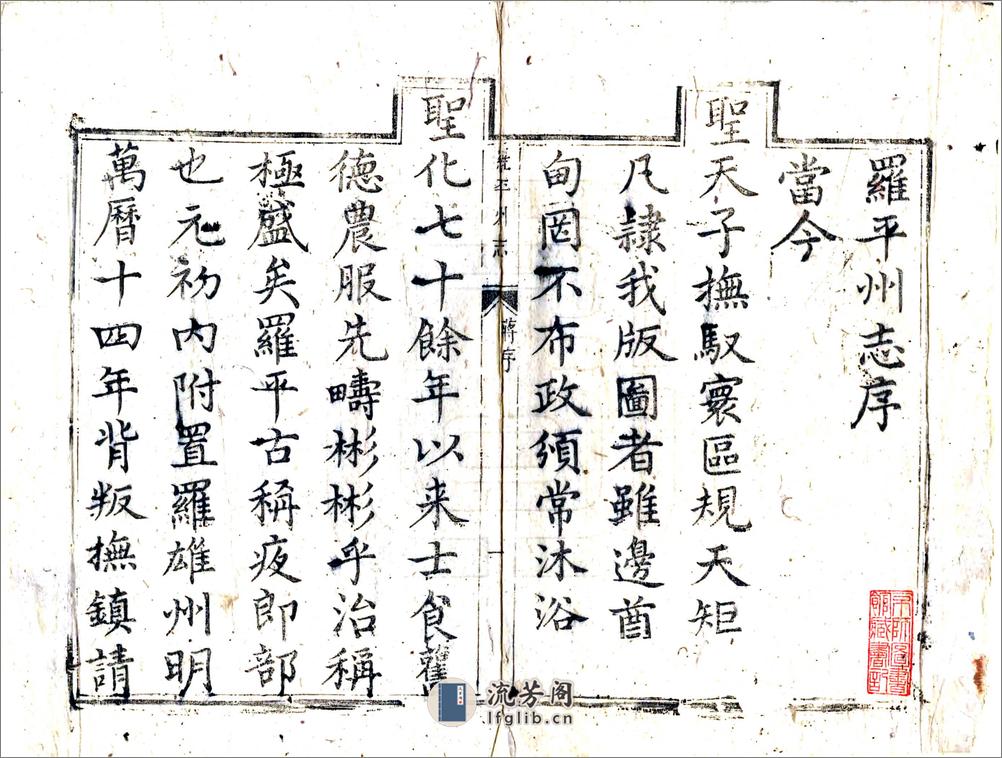 羅平州志序
當今
聖天子撫馭寰區規天矩
凡隷我版圖者雖邊酋
甸罔不布政頒常沐浴
羅平州志
蔣序
一
聖化七十餘年以来士食舊
德農服先疇彬彬乎治稱
極盛矣羅平古稱夜郎部
也元初内附置羅雄州明
萬曆十四年背叛撫鎮請
京師圖書館藏書記
流芳阁
lfglib.cn